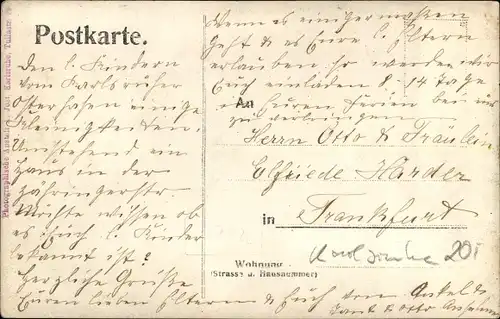 Postkarte.
Den l. Kindern
vom Karlsruher
Osterhasen einige
Kleinigkeiten.
Umstehend ein
Haus in der
Zähringerstr.
Möchte wissen ob
es Euch l. Kinder
bekannt ist?
Herzliche Grüße
Euren lieben Eltern & Euch vom Onkel &
Tant & Otto
Wenn es einigermassen
geht & es Eure l. Eltern
erlauben so werden wir
Euch einladen 8-14 Tage
in Euren Ferien bei uns
zu verbringen
An
Herrn Otto & Fräulein
Elfriede Harder
in Frankfurt
Wohnung
(Strasse u. Hausnummer)
20
Photographische Anstalt Karlsruhe,